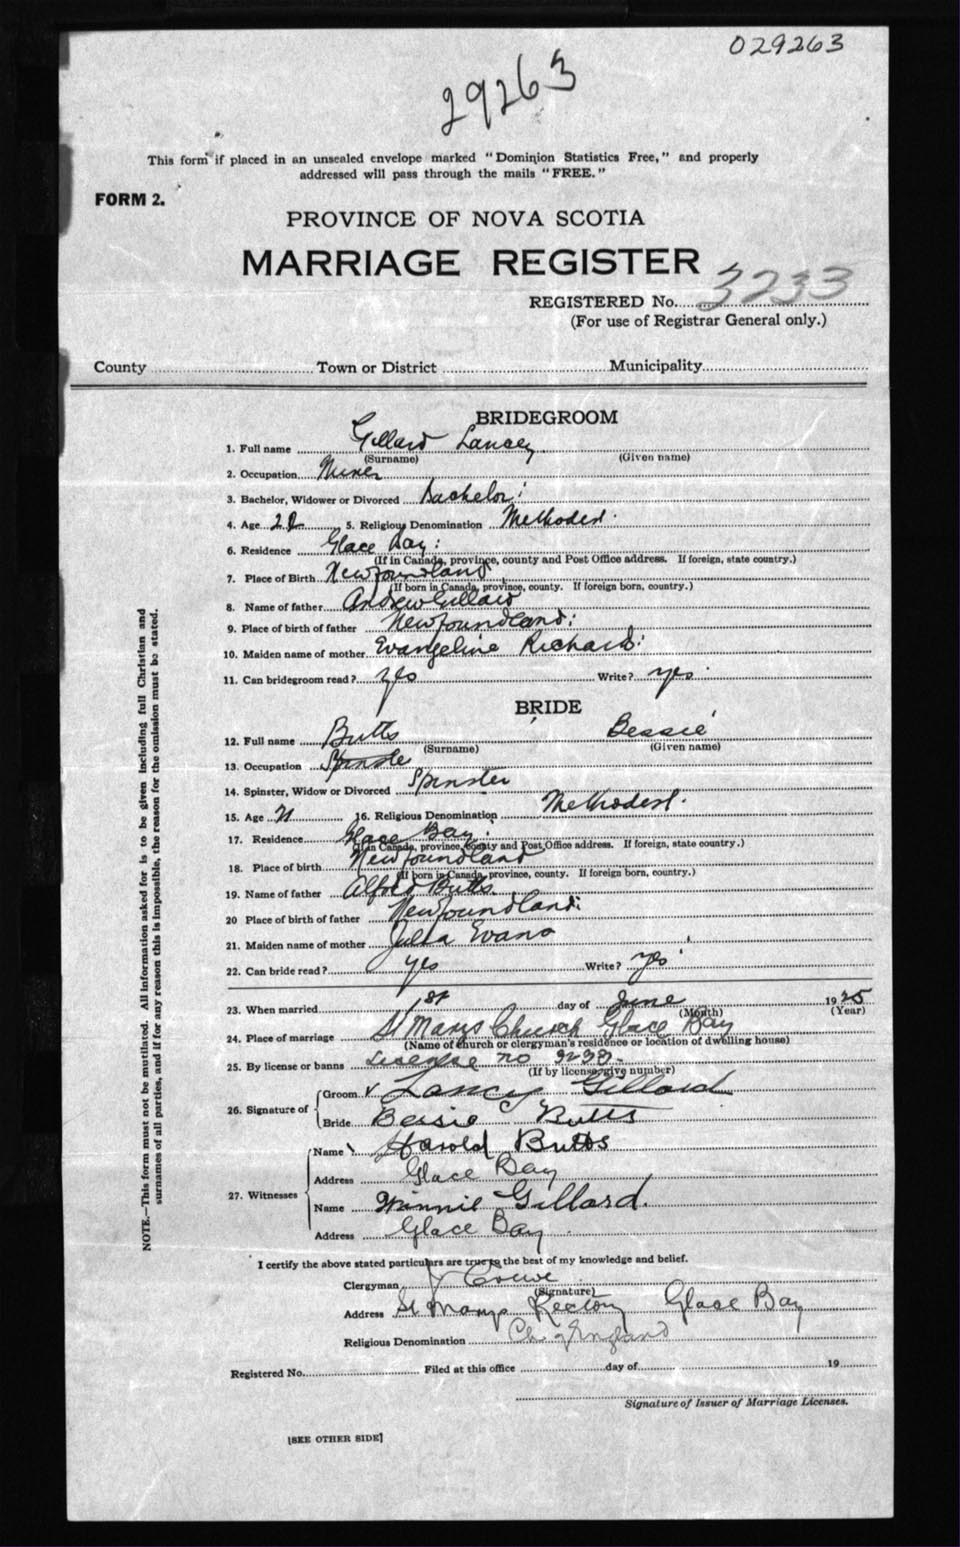 029263
29263
This form if placed in an unsealed envelope marked "Dominion Statistics Free," and properly
addressed will pass through the mails "FREE."
FORM 2.
PROVINCE OF NOVA SCOTIA
MARRIAGE REGISTER
REGISTERED No. 3233
(For use of Registrar General only.)
County Town or District Municipality
BRIDEGROOM
1. Full name Gillard Lancey
(Surname) (Given name)
2. Occupation Miner
3. Bachelor, Widower or Divorced Bachelor
4. Age 22 5. Religious Denomination Methodist
6. Residence Glace Bay
(If in Canada, province, county and Post Office address. If foreign, state country.)
7. Place of Birth Newfoundland
(If born in Canada, province, county. If foreign born, country.)
8. Name of father Andrew Gillard
9. Place of birth of father Newfoundland
10. Maiden name of mother Evangeline Richard
11. Can bridegroom read? yes Write? yes
BRIDE
12. Full name Butts Bessie
(Surname) (Given name)
13. Occupation
14. Spinster, Widow or Divorced Spinster
15. Age 21 16. Religious Denomination Methodist
17. Residence Glace Bay
(If in Canada, province, county and Post Office address. If foreign, state country.)
18. Place of birth Newfoundland
(If born in Canada, province, county. If foreign born, country.)
19. Name of father Alfred Butts
20 Place of birth of father Newfoundland
21. Maiden name of mother Julia Evans
22. Can bride read? yes Write? yes
23. When married 1st day of June 1925
(Month) (Year)
24. Place of marriage St Marys Church Glace Bay
(Name of church or clergyman's residence or location of dwelling house)
25. By license or banns License no 3233
(If by license, give number)
26. Signature of Groom Lancy Gillard
Bride Bessie Butts
27. Witnesses Name Harold Butts
Address Glace Bay
Name Winnie Gillard.
Address Glace Bay
I certify the above stated particulars are true to the best of my knowledge and belief.
Clergyman
(Signature)
Address St Marys Rectory Glace Bay
Religious Denomination Ch. of England
Registered No. Filed at this office day of 19
Signature of Issuer of Marriage Licenses.
[SEE OTHER SIDE]
NOTE.—This form must not be mutilated. All information asked for is to be given including full Christian and
surnames of all parties, and if for any reason this is impossible, the reason for the omission must be stated.